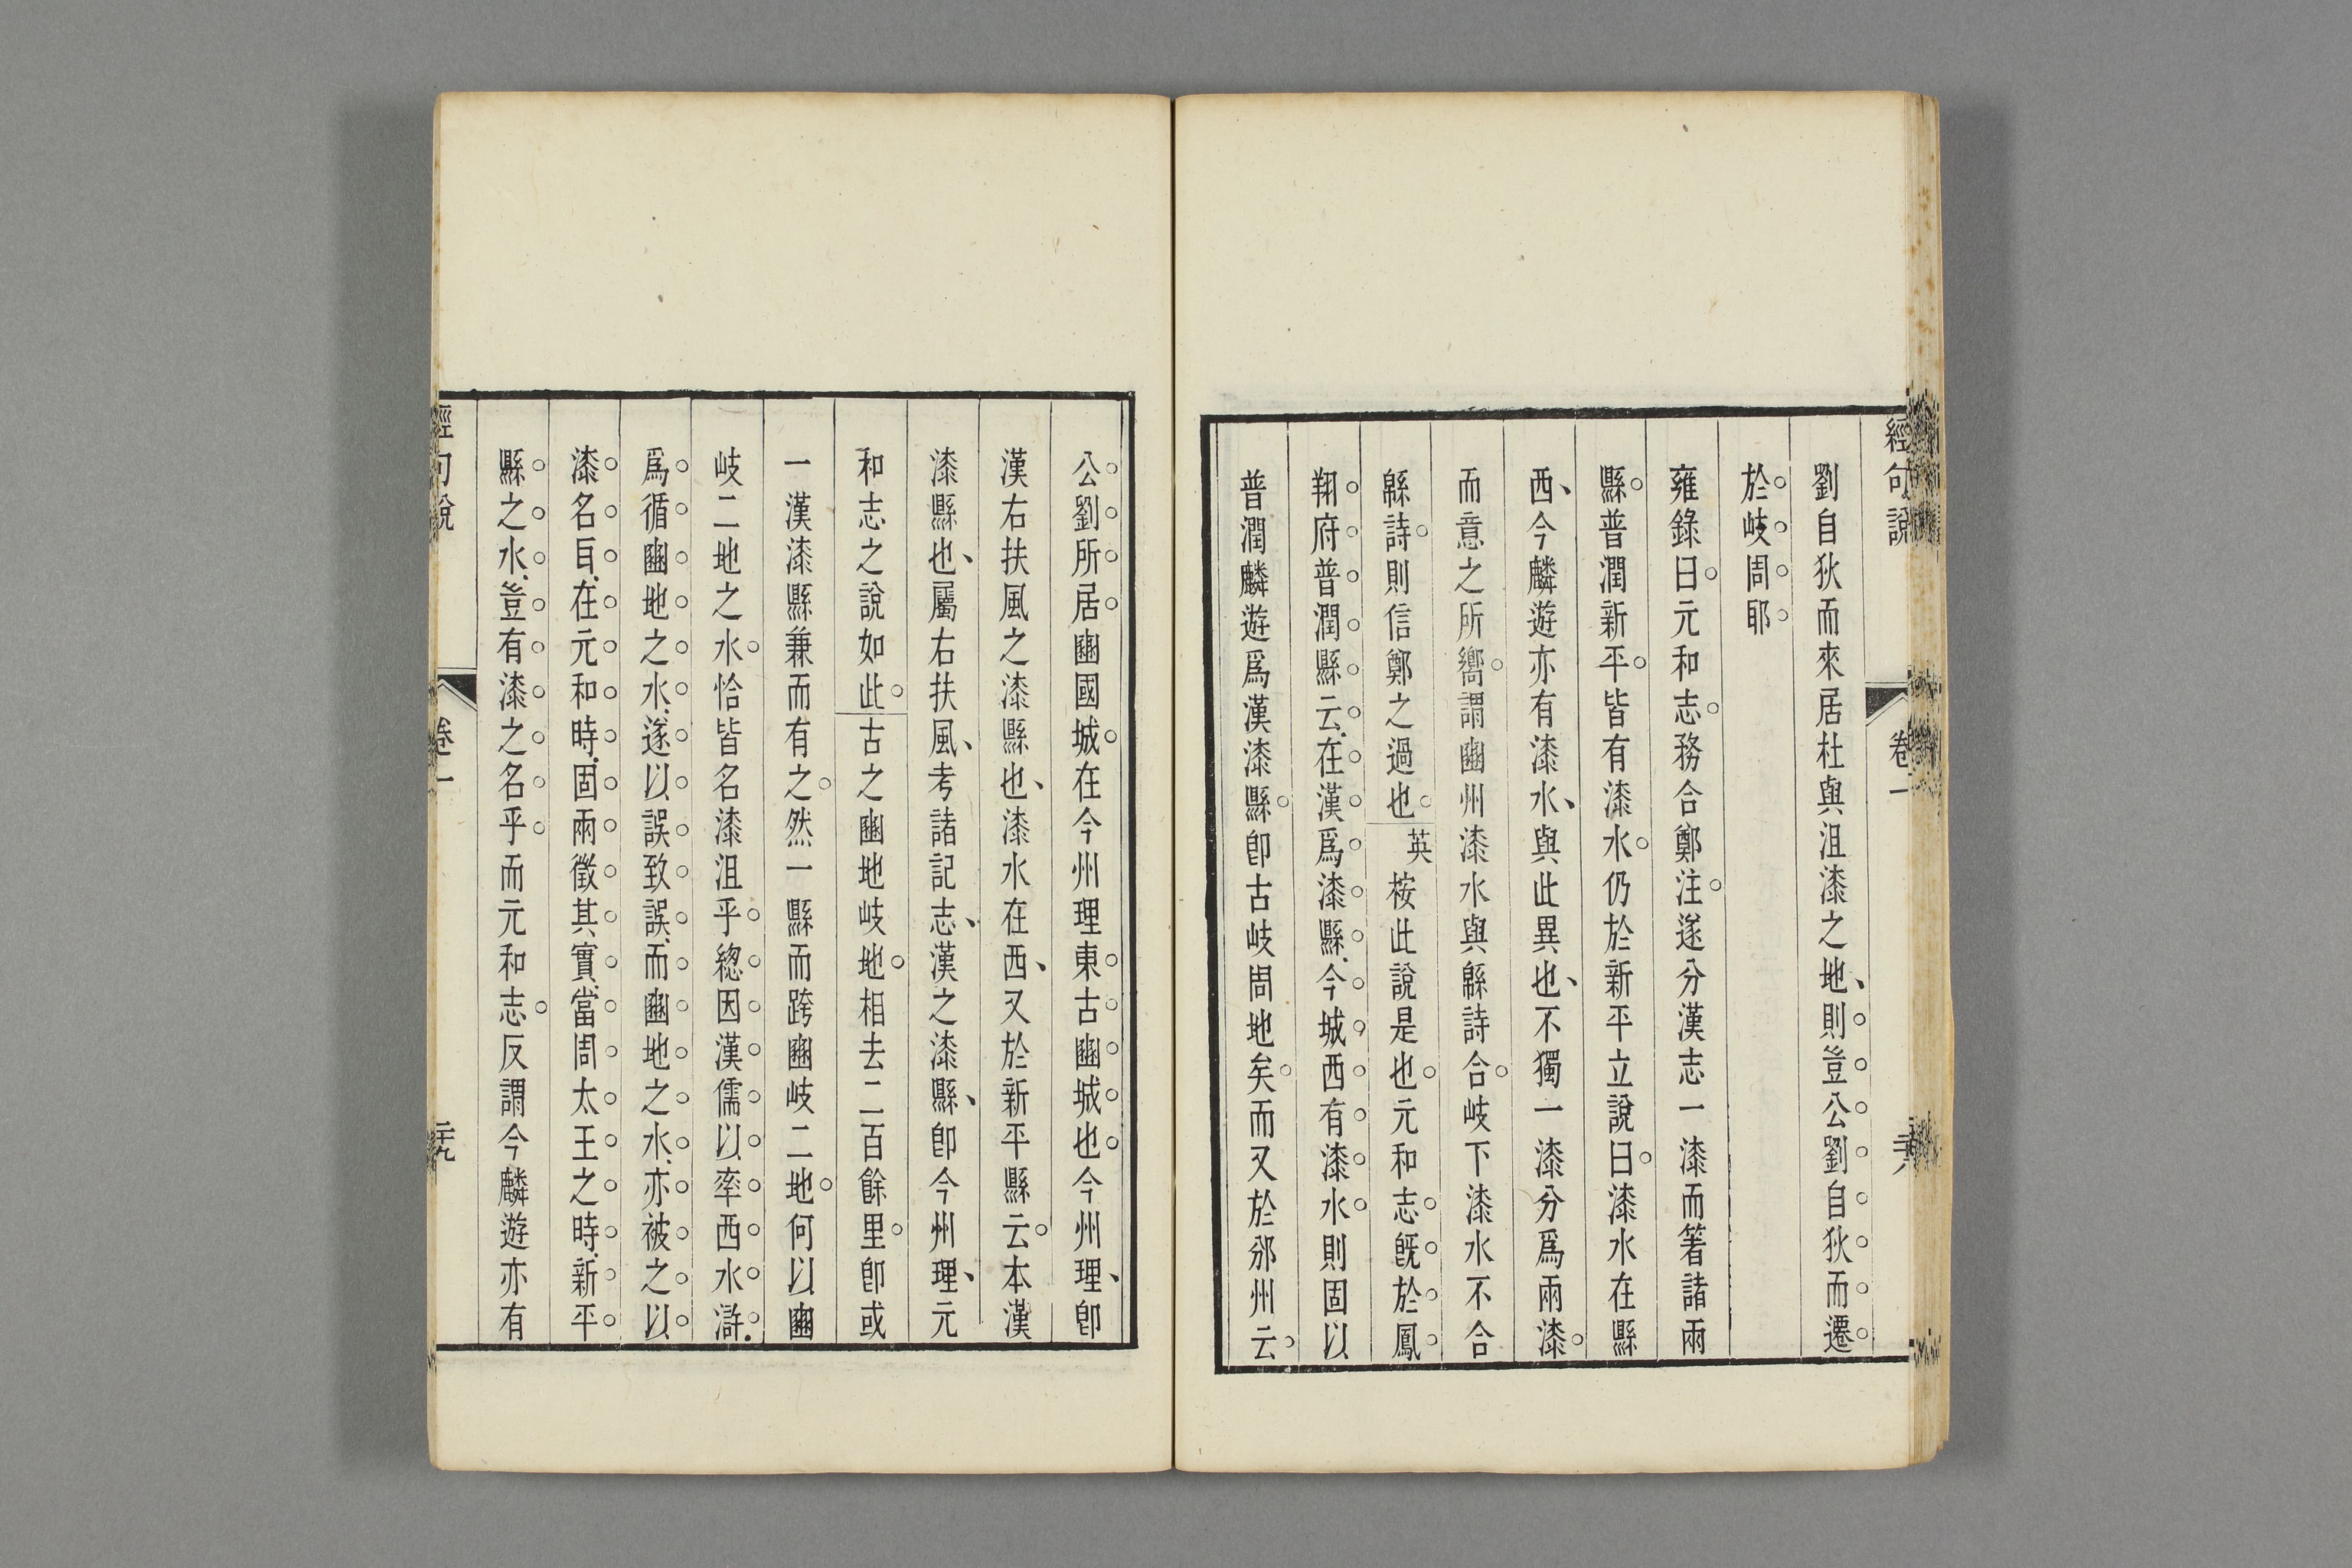 經句說
卷一
劉自狄而來居杜與沮漆之地、則豈公劉自狄而遷
於岐周耶
雍錄曰元和志務合鄭注遂分漢志一漆而箸諸兩
縣普潤新平皆有漆水仍於新平立說曰漆水在縣
西、今麟遊亦有漆水、與此異也、不獨一漆分爲兩漆
而意之所嚮謂豳州漆水與緜詩合岐下漆水不合
緜詩則信鄭之過也英桉此說是也元和志旣於鳳
翔府普潤縣云在漢爲漆縣今城西有漆水則固以
普潤麟遊爲漢漆縣卽古岐周地矣而又於邠州云
公劉所居豳國城在今州理東古豳城也今州理、卽
漢右扶風之漆縣也、漆水在西、又於新平縣云本漢
漆縣也、屬右扶風、考諸記志、漢之漆縣、卽今州理、元
和志之說如此古之豳地岐地相去二百餘里卽或
一漢漆縣兼而有之然一縣而跨豳岐二地何以豳
岐二地之水恰皆名漆沮乎緫因漢儒以率西水滸
爲循豳地之水遂以誤致誤而豳地之水亦被之以
漆名𦣝在元和時固兩徵其實當周太王之時新平
縣之水豈有漆之名乎而元和志反謂今麟遊亦有
經句說
卷一